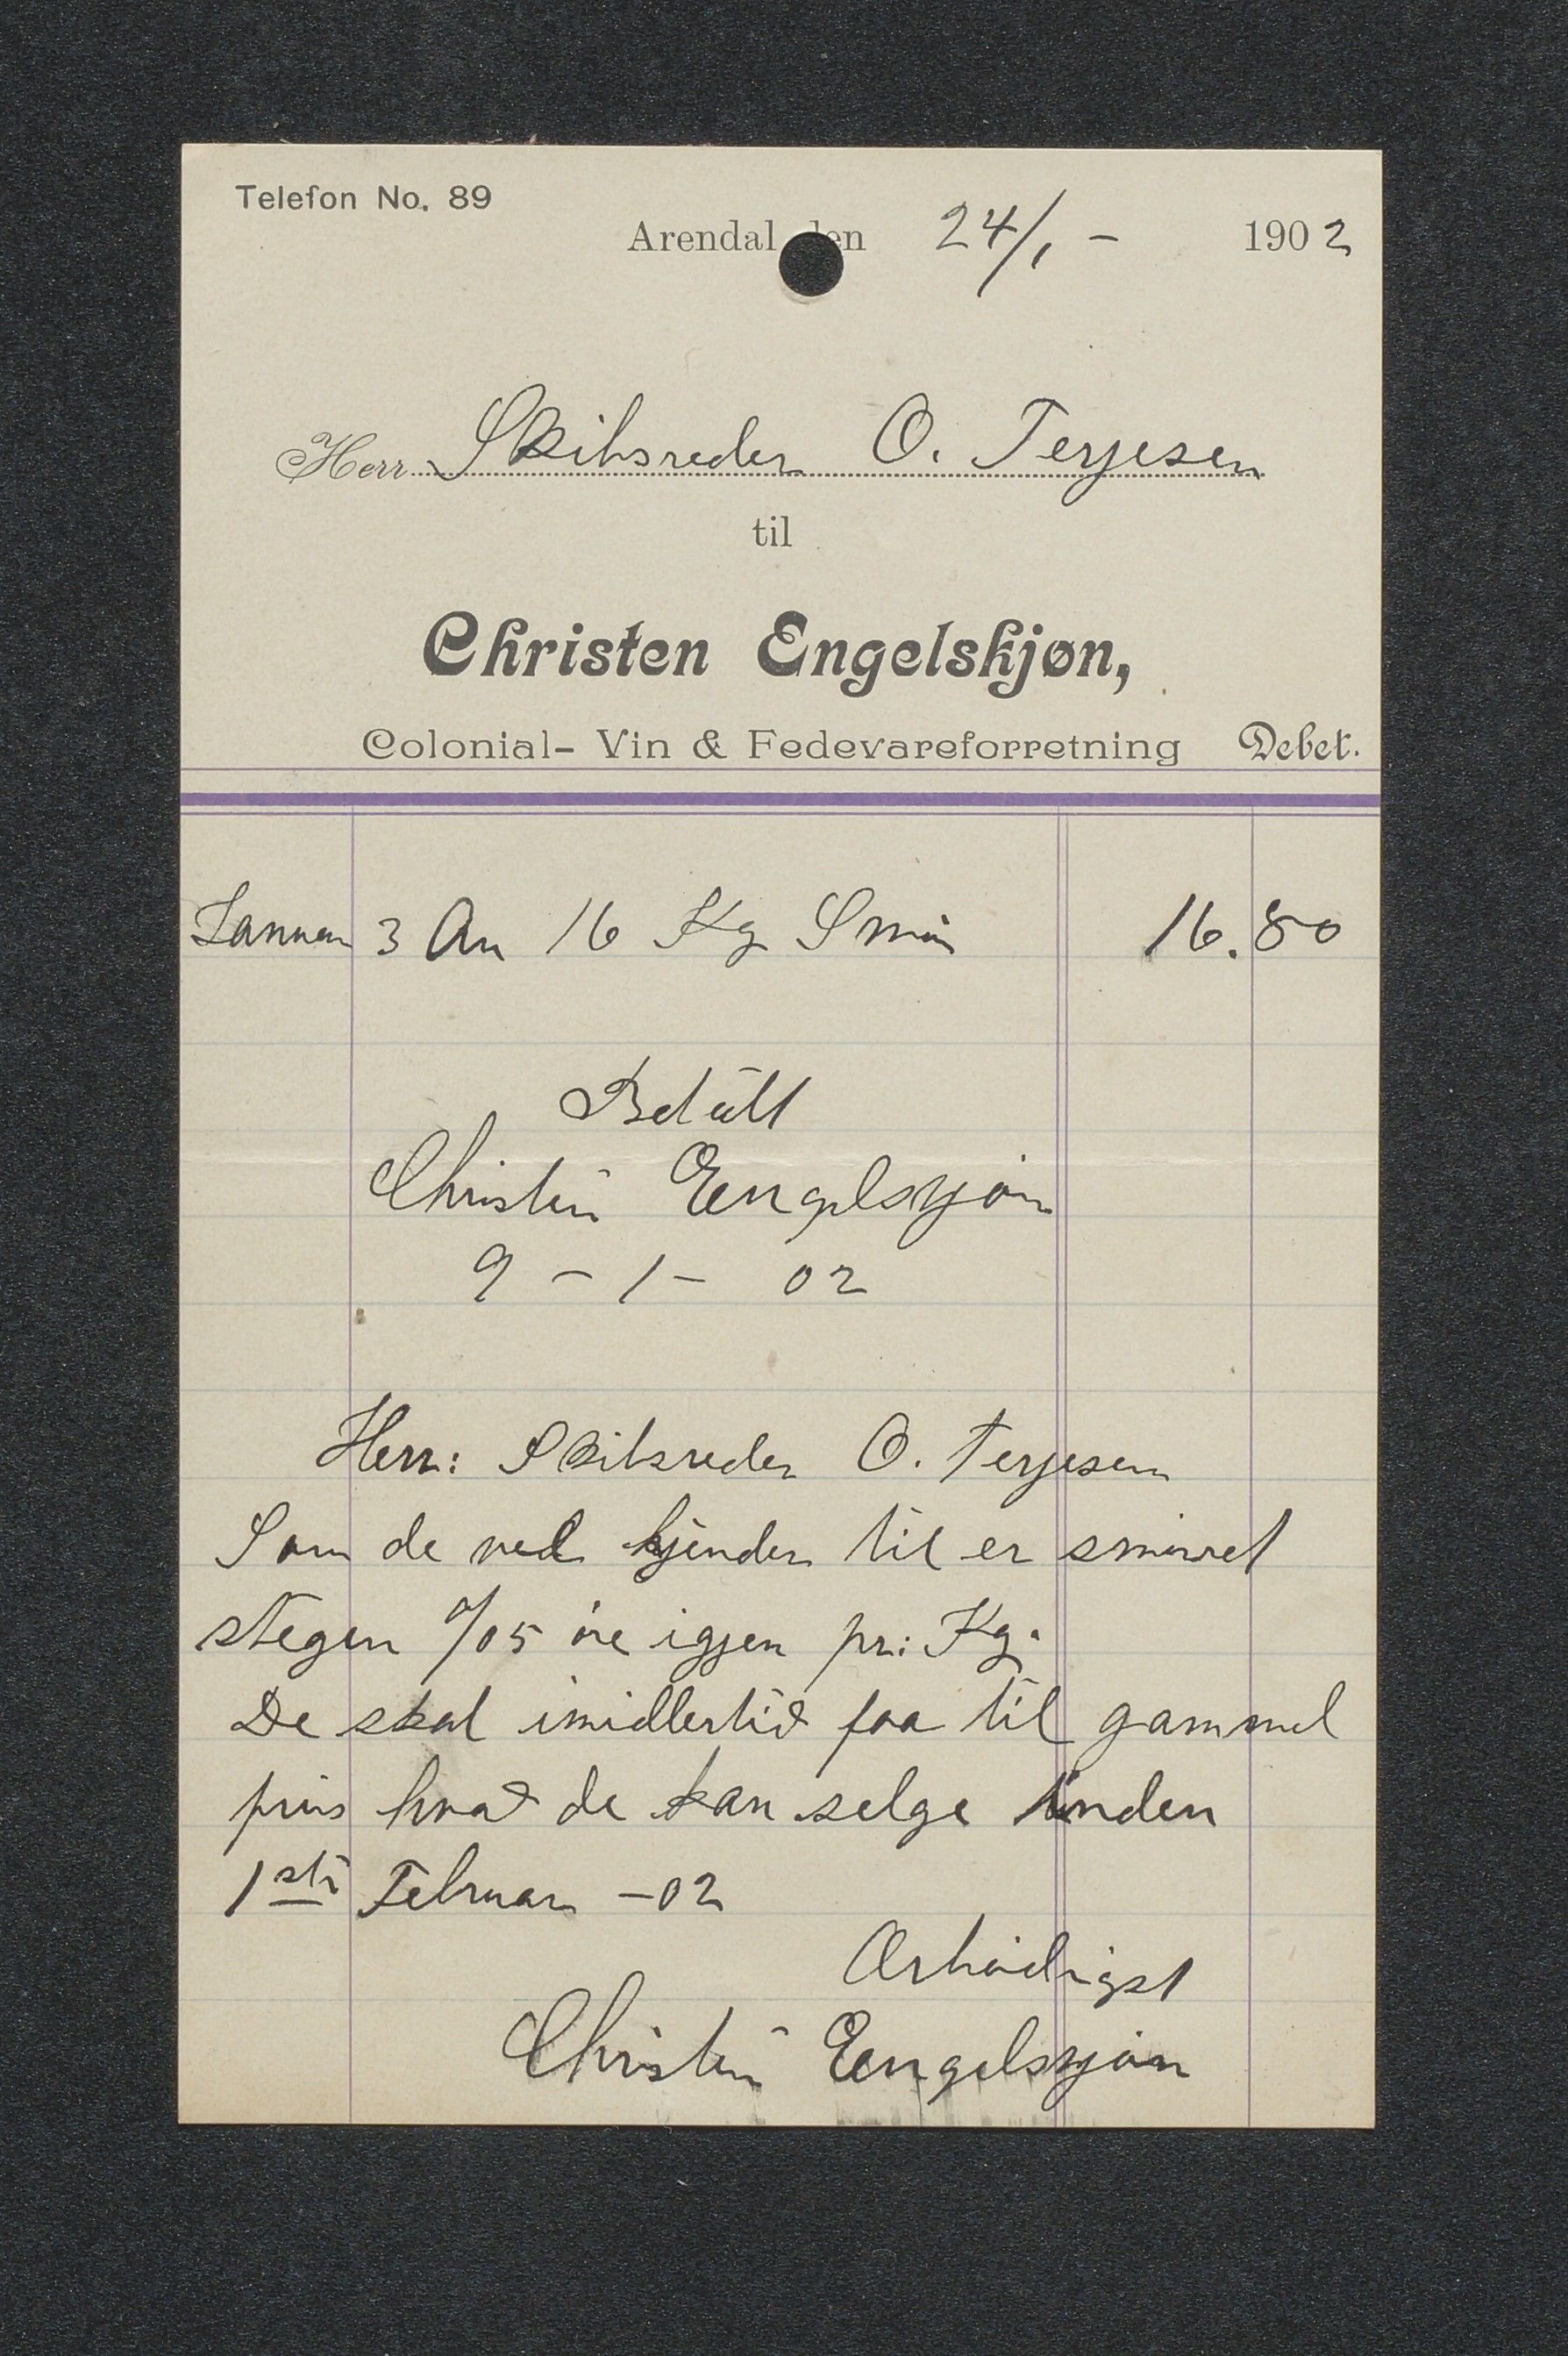 Telefon No. 89
Arendal den 24/1 - 1902
Herr Skibsreder O. Terjesen
til
Christen Engelskjøn,
Colonial- Vin & Fedevareforretning Debet.
Januar 3 An 16 Kg Smør 16.80
Betalt
Christen Engelskjøn
9 - 1 - 02
Herr: Skibsreder O. Terjesen
Som de ved kjender til er smørret
stegen 0/05 øre igjen pr: Kg.
De skal imidlertid faa til gammel
pris hvad de kan selge inden
1ste Februar -02
Ærbødigst
Christen Engelskjøn